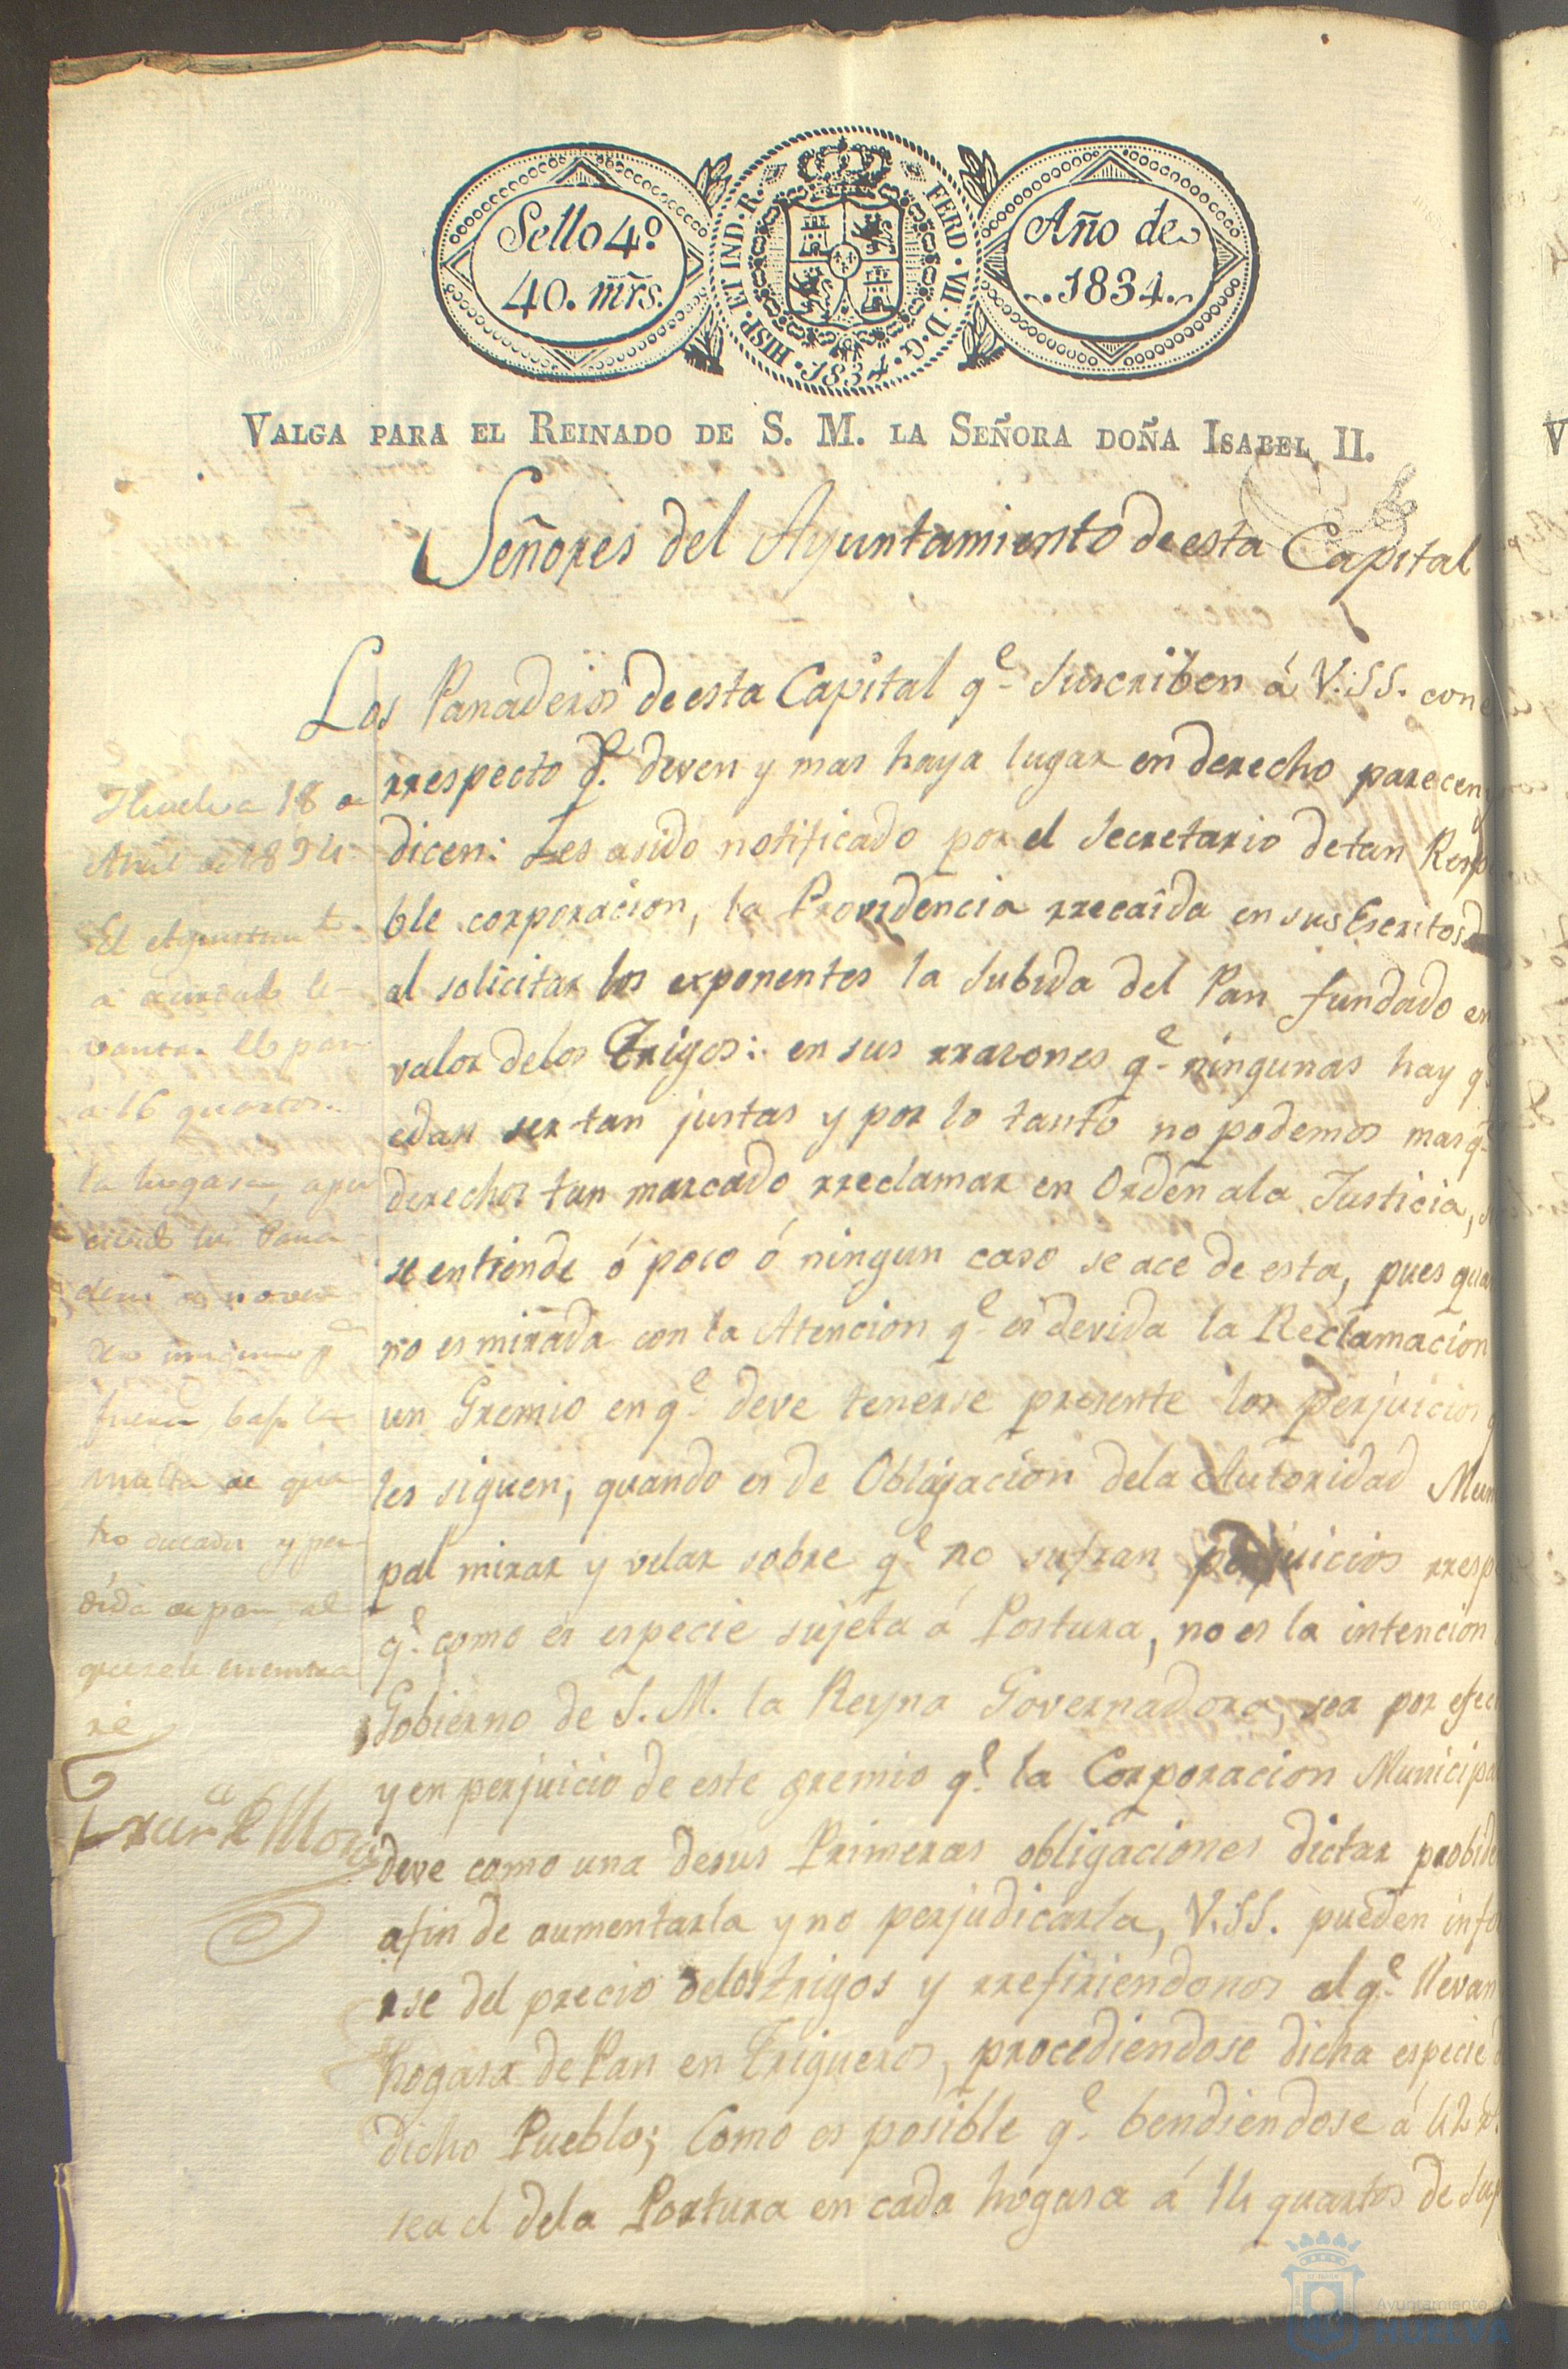 Sello 4º
40. mrs.
HISP. ET IND. R. FERD. VII. D. G. 1834.
Año de
1834.
VALGA PARA EL REINADO DE S. M. LA SEÑORA DOÑA ISABEL II.
Señores del Ayuntamiento de esta Capital
Los Panaderos de esta Capital qe. Suscriben á V.SS. con
rrespecto q. deven y mas haya lugar en derecho parecen y
dicen: Les asido notificado por el Secretario de tan
ble corporacion, la Providencia rrecaida en sus Escritos
al solicitar los exponentes la Subida del Pan fundado en
valor delos Trigos: en sus rrazones qe. ningunas hay
ser tan justas y por lo tanto no podemos mas q.
derechos tan marcado rreclamar en Orden ala Justicia,
se entiende ó poco ó ningun caso se ace de esta, pues
no es mirada con la Atencion qe. es devida la Reclamacion
un Gremio en qe. deve tenerse presente los perjuicios
les siguen, quando es de Obligacion dela Autoridad
pal mirar y velar sobre qe. no sufran perjuicios
qe. como es especie sujeta á Postura, no es la intencion
Gobierno de S. M. la Reyna Governadora, sea por
y en perjuicio de este gremio qe. la Corporacion
deve como una desus Primeras obligaciones dictar
afin de aumentarla y no perjudicarla, V.SS. pueden
rse del precio delos trigos y rrefiriendonos al qe. llevan
hogasa de Pan en Trigueros, procediendose dicha especie
dicho Pueblo; Como es posible qe. bendiendose á 42
sea el dela Postura en cada hogasa á 14 quartos de
Huelva 18 de
Abril de 1834.
El Ayuntamto.
á acordado le-
vantar el pan
á 16 quartos
la hogasa,
los Pana-
deros
fuera, bajo la
multa de qua-
tro ducados y per-
dida de pan, al
que se le encontra-
re
Ayuntamiento
HUELVA